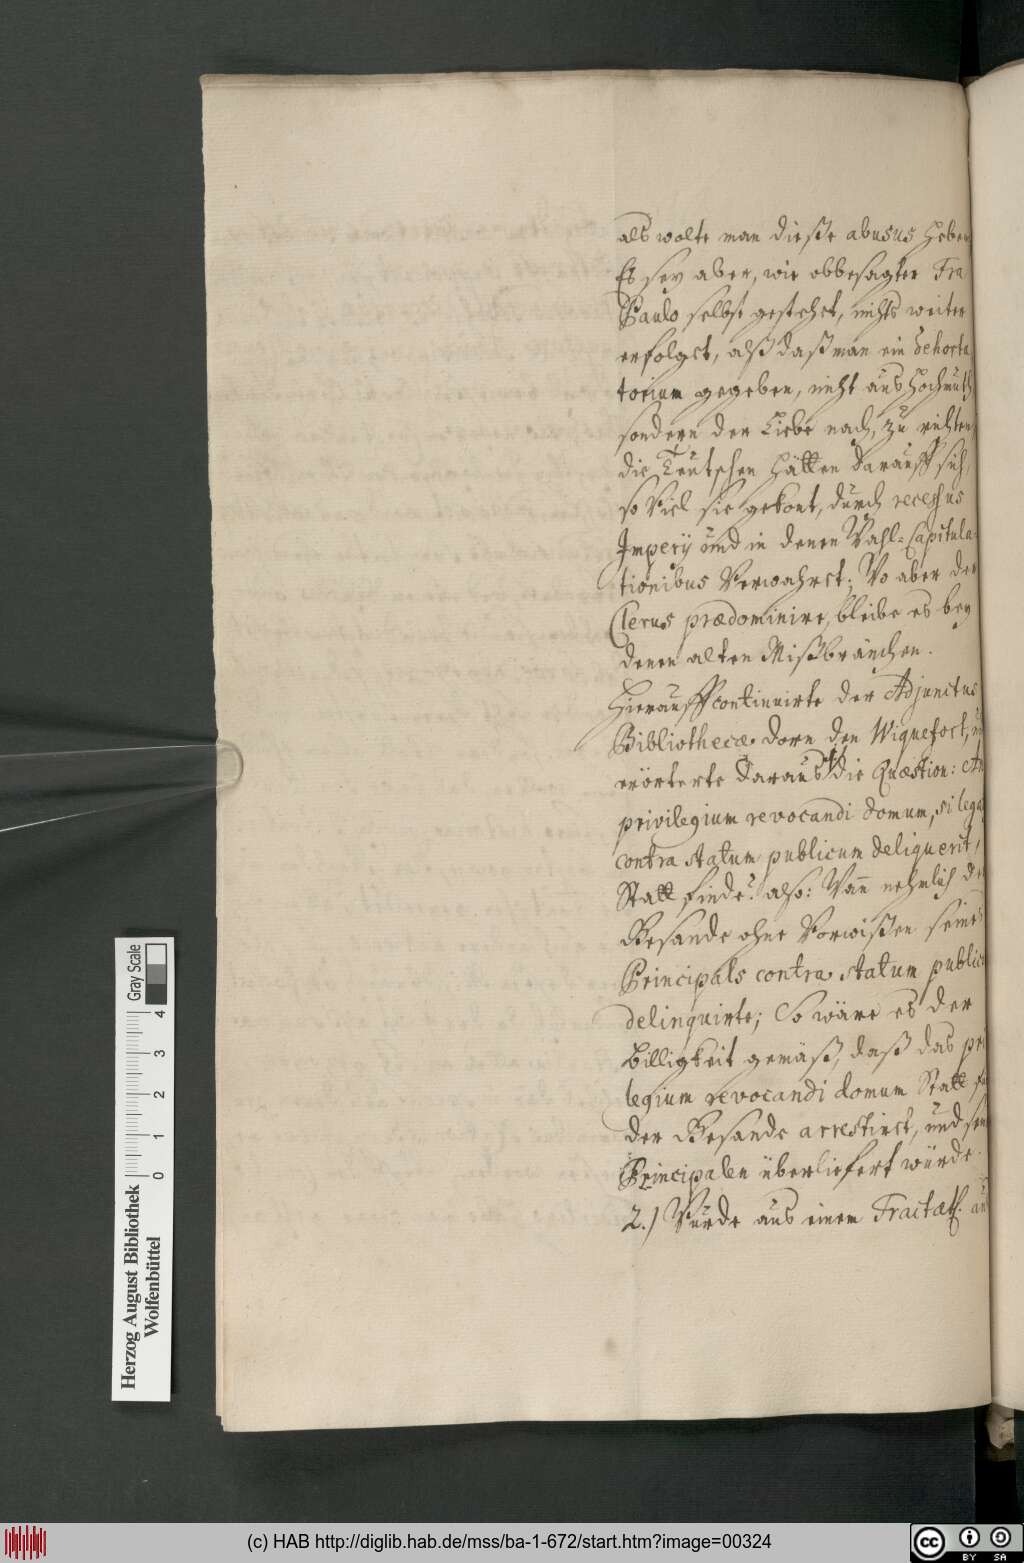 als wolte man dieße abusus heben
Es sey aber, wie obbesagter Fra
Paulo selbst gestehet, nichts weiter
erfolget, alß daß man ein Dehorta
torium gegeben, nicht aus Hochmuth
sondern der Liebe nach, zu richten,
die Teutschen hätten darauff sich,
so viel sie gekont, durch recessus
Imperij und in denen Wahl-Capitula
tionibus verwahret; Wo aber der
Clerus prædominire, bleibe es bey
denen alten Mißbräuchen.
Hierauff continuirte der Adjunctus
Bibliothecæ dorn den Wiquefort,
erörterte daraus die Quæstion: An
privilegium revocandi domum, si lega
contra statum publicum deliquerit,
Statt finde? also: Wann nehmlich de
Gesande ohne Vorwißen seines
Principals contra statum public
delinquirte; So wäre es der
Billigkeit gemäß, daß das pri
legium revocandi domum Statt
der Gesande arrestiret, und sein
Principalen überliefert würde.
2.) Wurde aus einem Tractat. au
Herzog August Bibliothek
Wolfenbüttel
0 1 2 3 4
Gray Scale
(c) HAB http://diglib.hab.de/mss/ba-1-672/start.htm?image=00324
cc BY SA